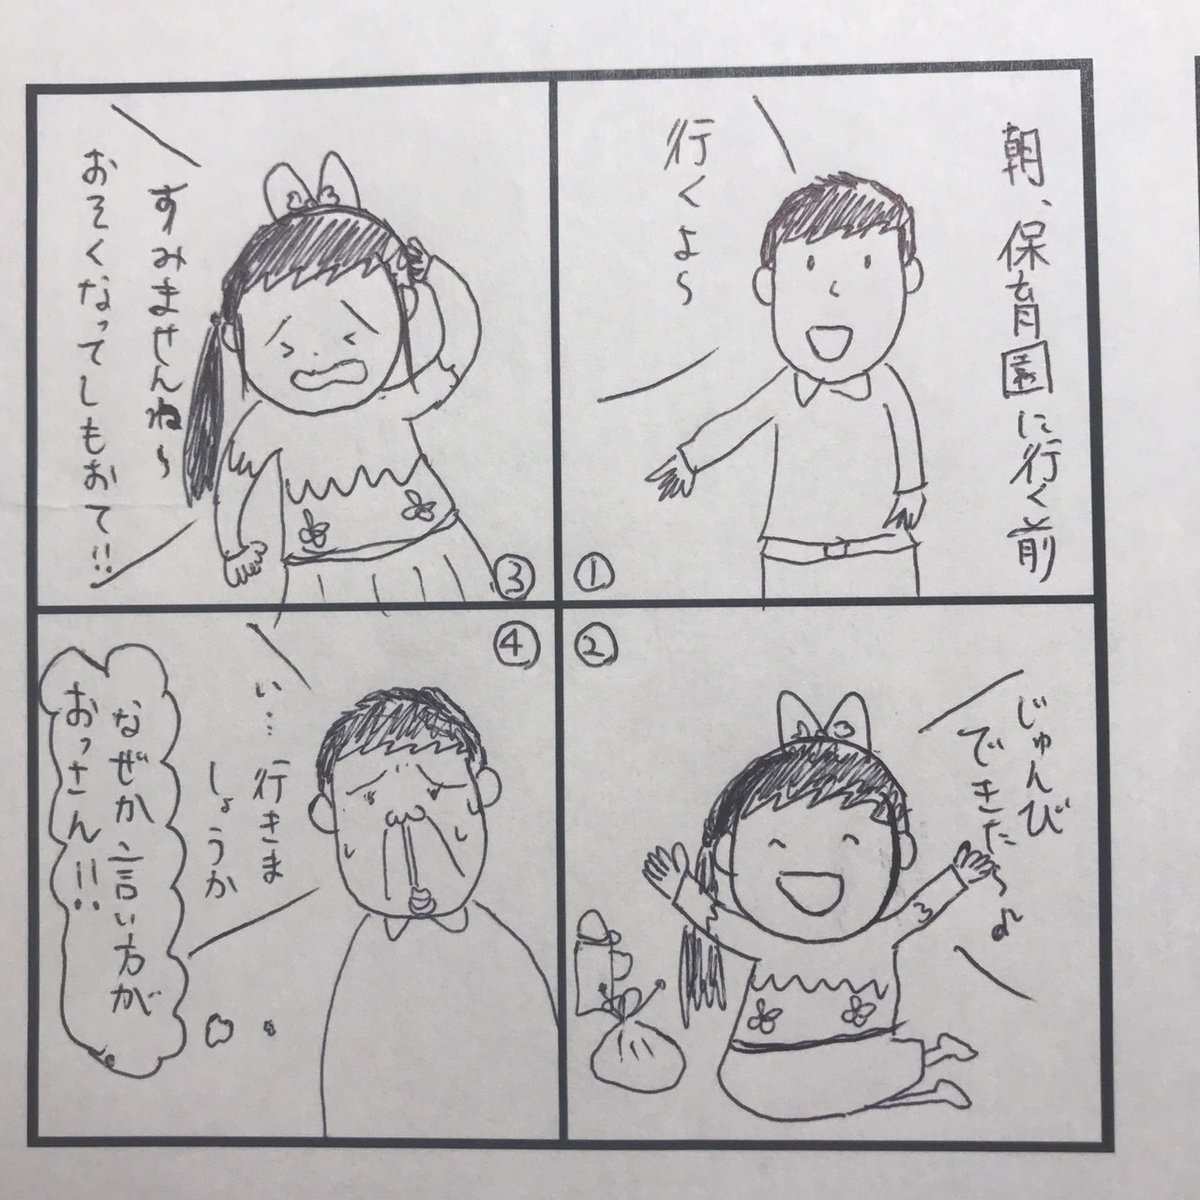 朝、保育園に行く前
行くよ〜
①
②
じゅんび
できた〜♪
すみませんね〜
おそくなってしもおて!!
③
④
い…行きま
しょうか
なぜか言い方が
おっさん!!!